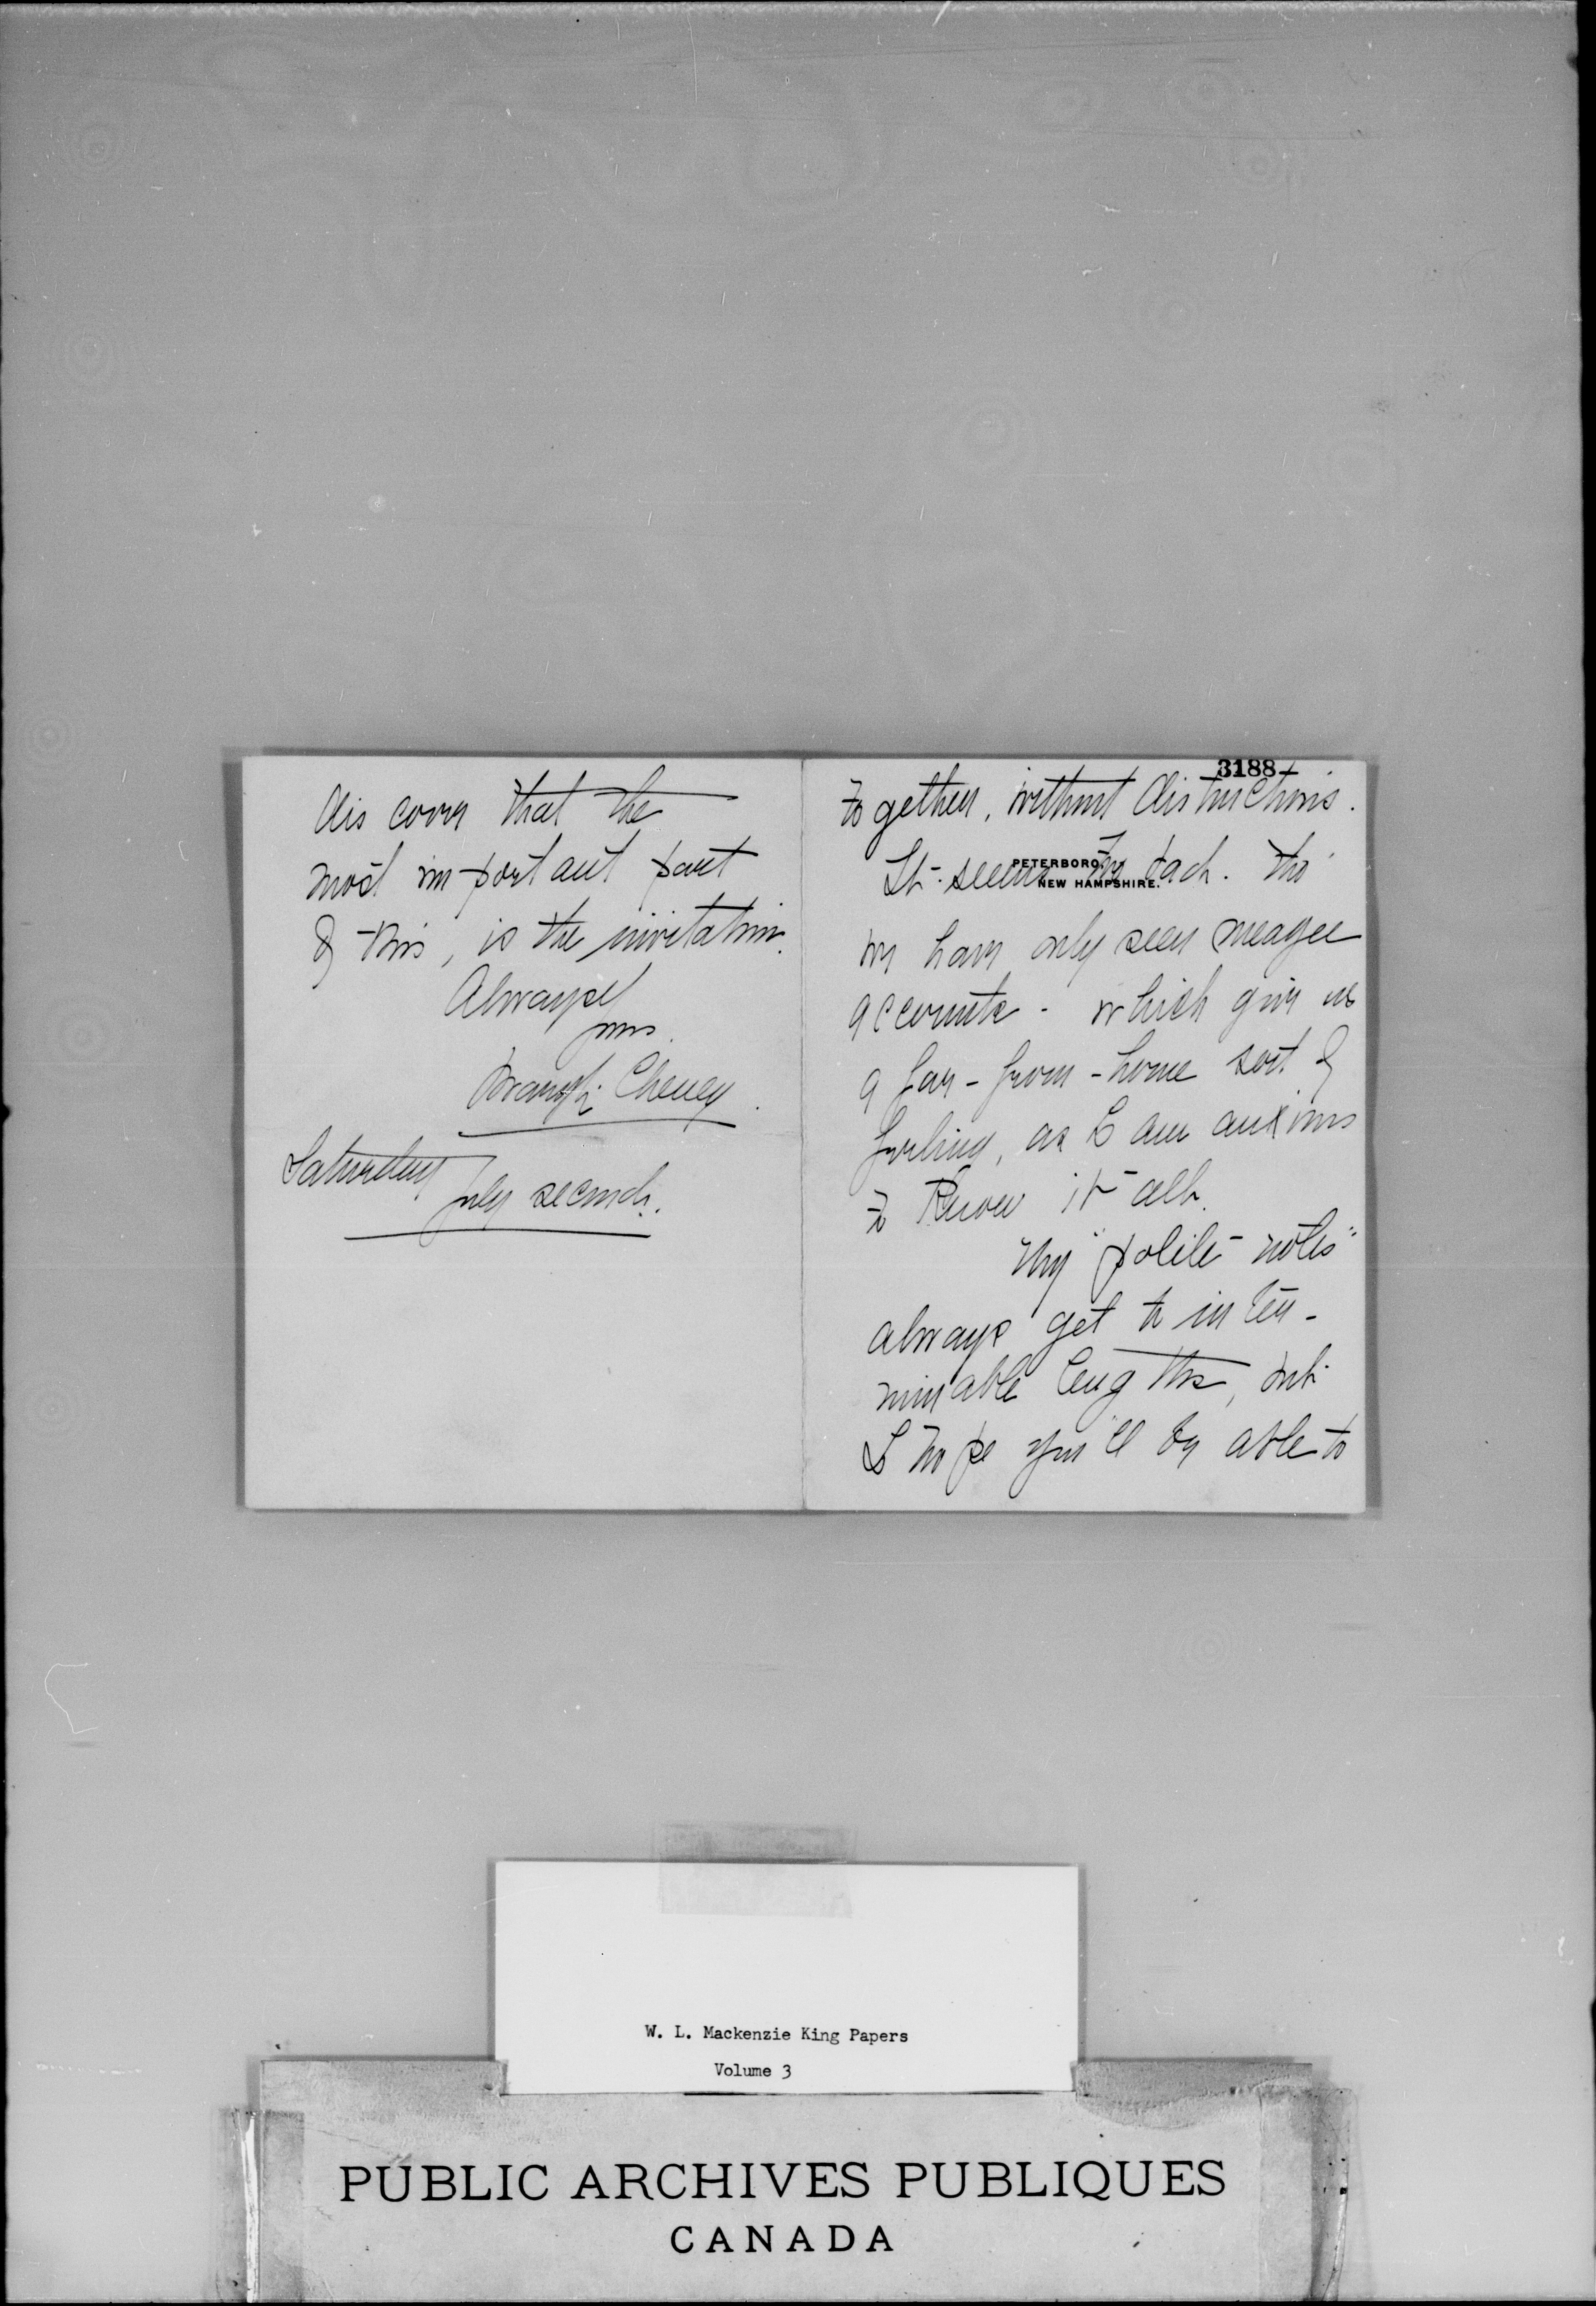 3188
together, without distinctions.
PETERBORO,
NEW HAMPSHIRE.
It seems too bad. tho'
we have only seen meagre
accounts - which give us
a far-from-home sort of
feeling, as I am anxious
to know it all.
My "polite notes"
always get to inter-
minable lengths, but
I hope you'll be able to
discover that the
most important part
of this, is the invitation.
Always
yours
Cheney.
Saturday
July second.
W. L. Mackenzie King Papers
Volume 3
PUBLIC ARCHIVES PUBLIQUES
CANADA